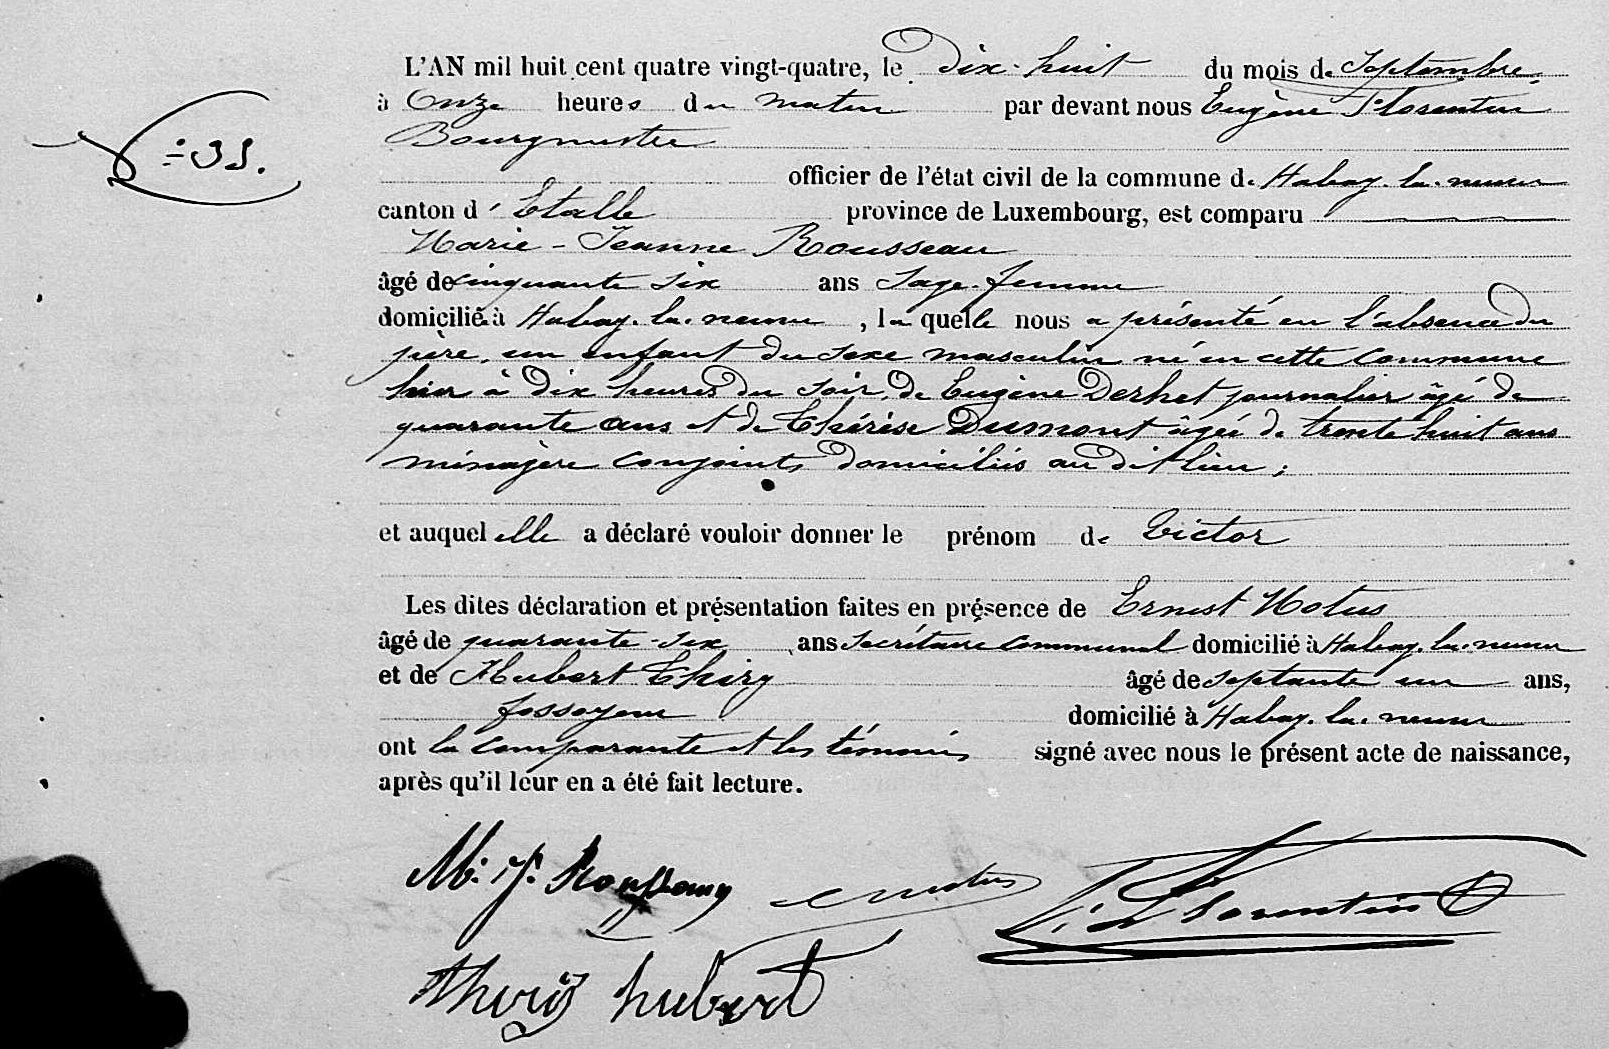 L'AN mil huit cent quatre vingt-quatre, le dix-huit du mois de Septembre
à Onze heures du matin par devant nous Eugène Florentin
÷ 33.
Bourgmestre
officier de l'état civil de la commune de Habay-la-neuve
canton d' Etalle province de Luxembourg, est comparu
Marie-Jeanne Rousseau
âgé de cinquante six ans Sage-femme
domiciliée à Habay-la-neuve, laquelle nous a présenté en l'absence du
père, un enfant du sexe masculin né en cette commune
hier à dix heures du soir, de Eugène Derhet journalier âgé de
quarante ans et de Thérèse Dumont âgée de trente huit ans
ménagère conjoints domiciliés au dit lieu ;
et auquel elle a déclaré vouloir donner le prénom de Victor
Les dites déclaration et présentation faites en présence de Ernest Motus
âgé de quarante-six, ans Secrétaire communal domicilié à Habay-la-neuve
et de Hubert Thiry âgé de septante un ans,
fossoyeur domicilié à Habay-la-neuve
ont la comparante et les témoins signé avec nous le présent acte de naissance,
après qu'il leur en a été fait lecture.
M. J. Rousseau E Motus E. Florentin
thiry hubert